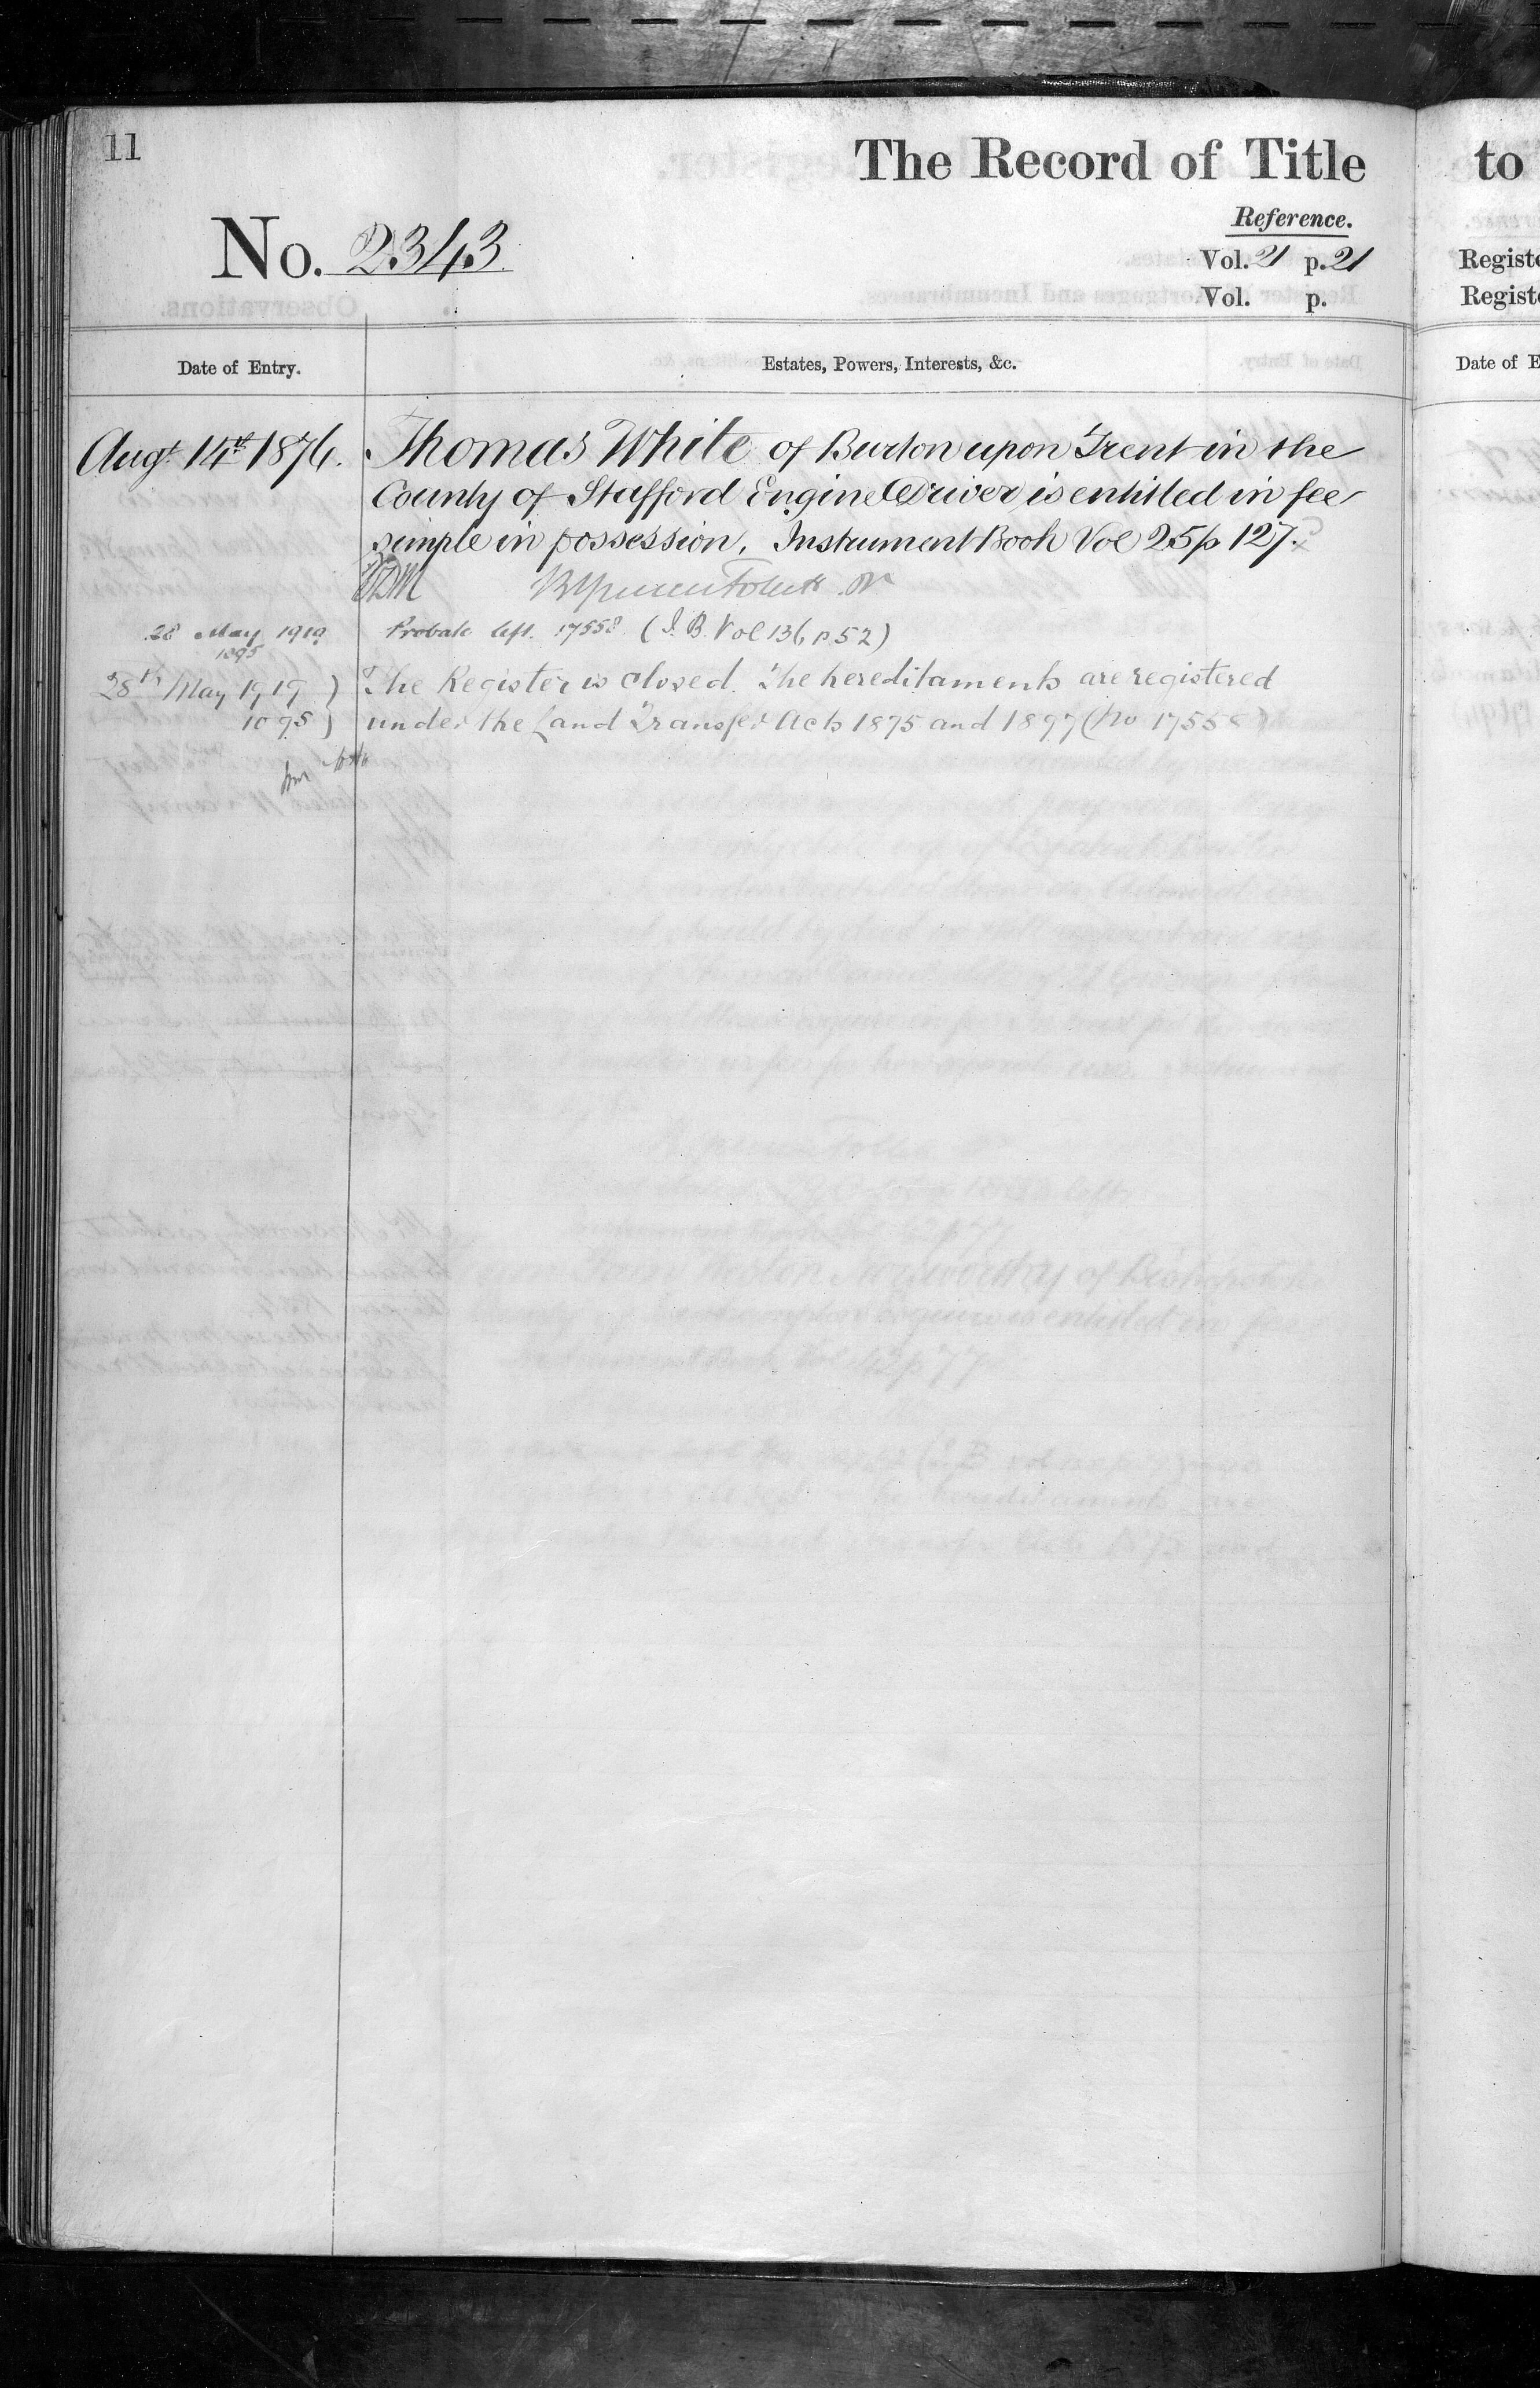 11
The Record of Title
to
No. 2343
Reference.
Vol. 21 p. 21
Vol. p.
Date of Entry.
Estates, Powers, Interests, &c.
Date of
Augt. 14th 1876. Thomas White of Burton upon Trent in the
County of Stafford Engine Driver is entitled in fee
simple in possession. Instrument Book Vol 25 p 127.
28 May 1919 Probate left. 17558 (I.B. Vol 136 p 52)
1095
28th May 1919 ) The Register is closed. The hereditaments are registered
1095 ) under the Land Transfer Acts 1875 and 1897 (No 17558)